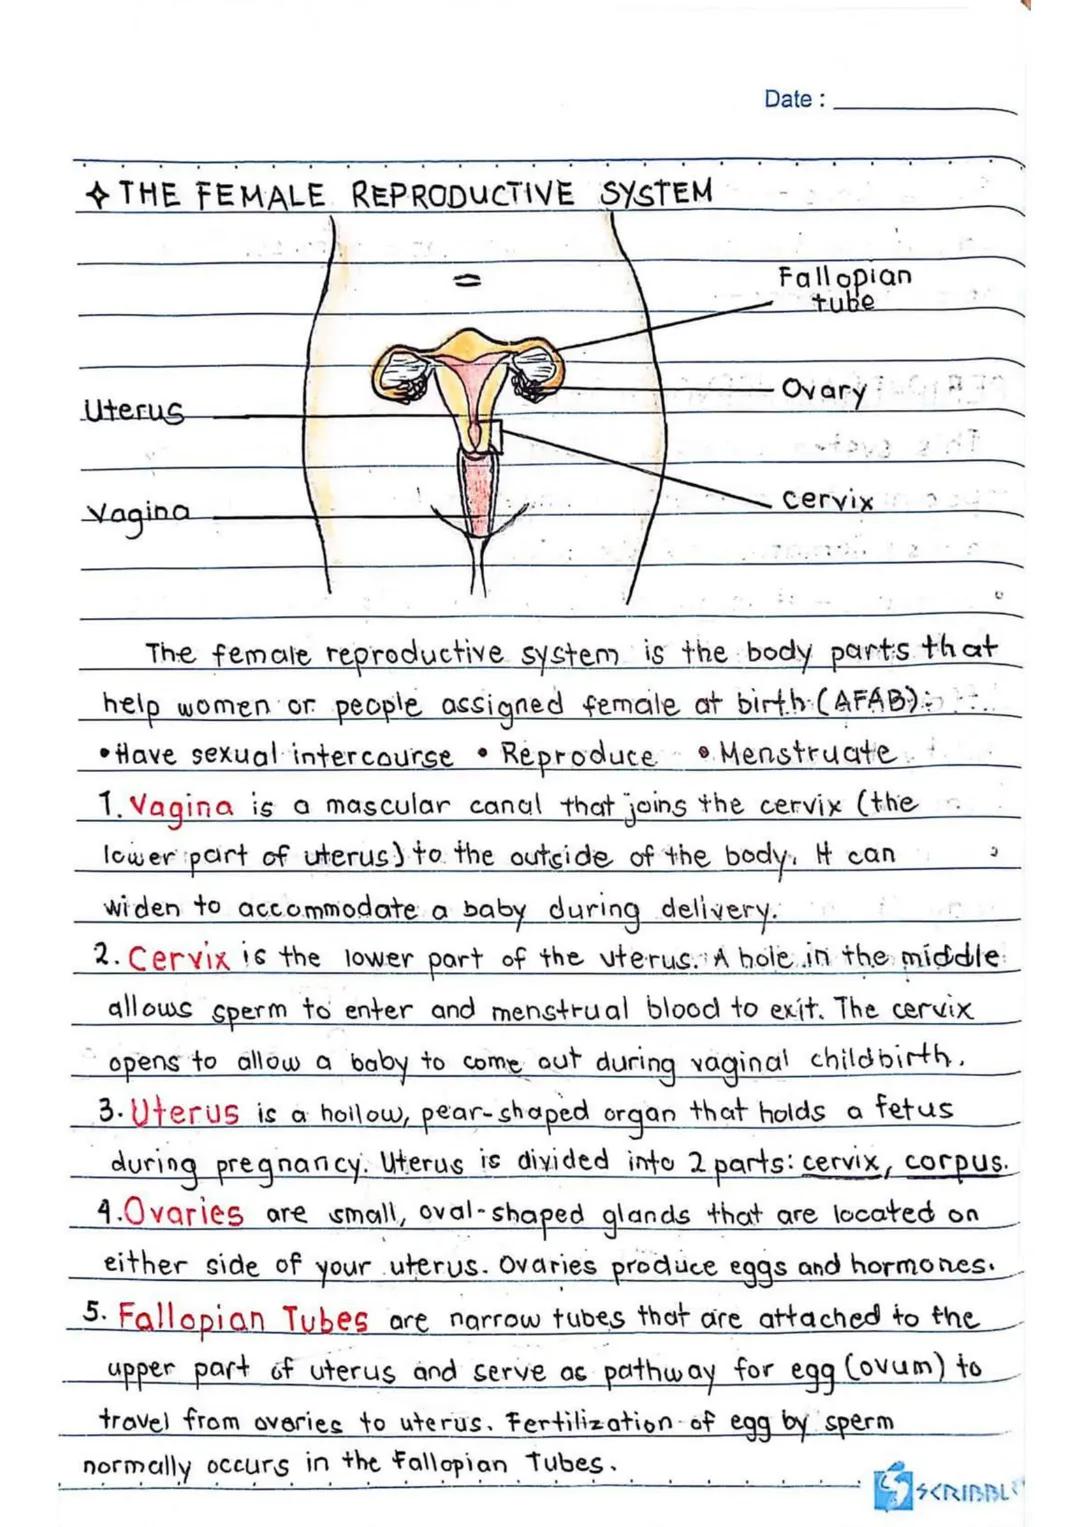 Date :
THE FEMALE REPRODUCTIVE SYSTEM
Fallopian
tube
Ovary
Uterus
Cervix
Vagina
The female reproductive system is the body parts that
help women or people assigned female at birth (AFAB):
• Have sexual intercourse • Reproduce • Menstruate
1. Vagina is a mascular canal that joins the cervix (the
lower part of uterus) to the outside of the body. It can
widen to accommodate a baby during delivery.
2. Cervix is the lower part of the uterus. A hole in the middle
allows sperm to enter and menstrual blood to exit. The cervix
opens to allow a baby to come out during vaginal childbirth.
3. Uterus is a hollow, pear-shaped organ that holds a fetus
during pregnancy. Uterus is divided into 2 parts: cervix, corpus.
4. Ovaries are small, oval-shaped glands that are located on
either side of your uterus. Ovaries produce eggs and hormones.
5. Fallopian Tubes are narrow tubes that are attached to the
upper part of uterus and serve as pathway for egg (ovum) to
travel from ovaries to uterus. Fertilization of egg by sperm
normally occurs in the Fallopian Tubes.
SCRIBBL